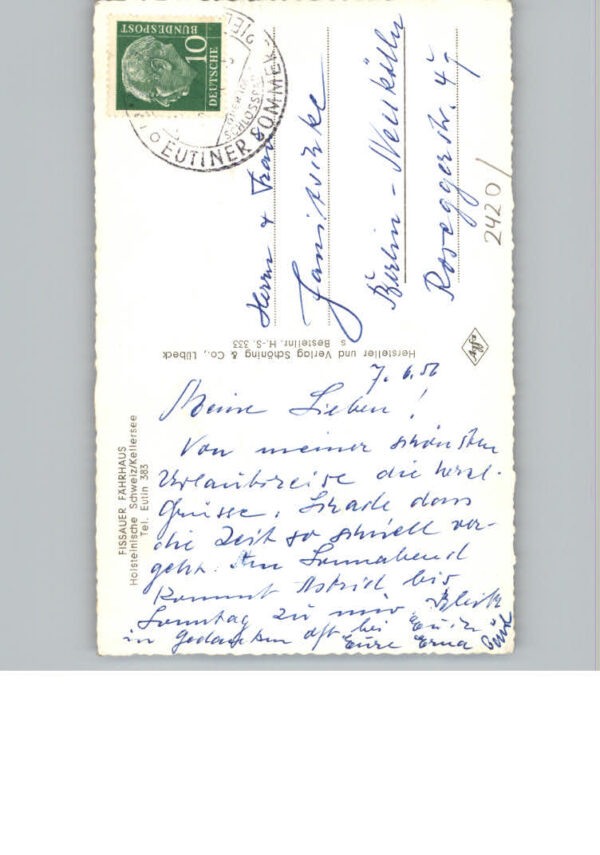 10
DEUTSCHE
BUNDESPOST
EUTINER SOMMER
Herrn & Frau
Janitszke
Berlin - Neukölln
Roseggerstr. 47
2420/
Hersteller und Verlag Schöning & Co., Lübeck
s Bestellnr. H.-S. 333
FISSAUER FÄHRHAUS
Holsteinische Schweiz/Kellersee
Tel. Eutin 383
7. 6. 56
Meine Lieben!
Von meiner schönsten
Urlaubsreise die herzl.
Grüsse. Schade dass
die Zeit so schnell ver-
geht. Am Sonnabend
kommt Astrid bis
Sonntag zu mir.
in Gedanken oft bei Euch
Eure Erna